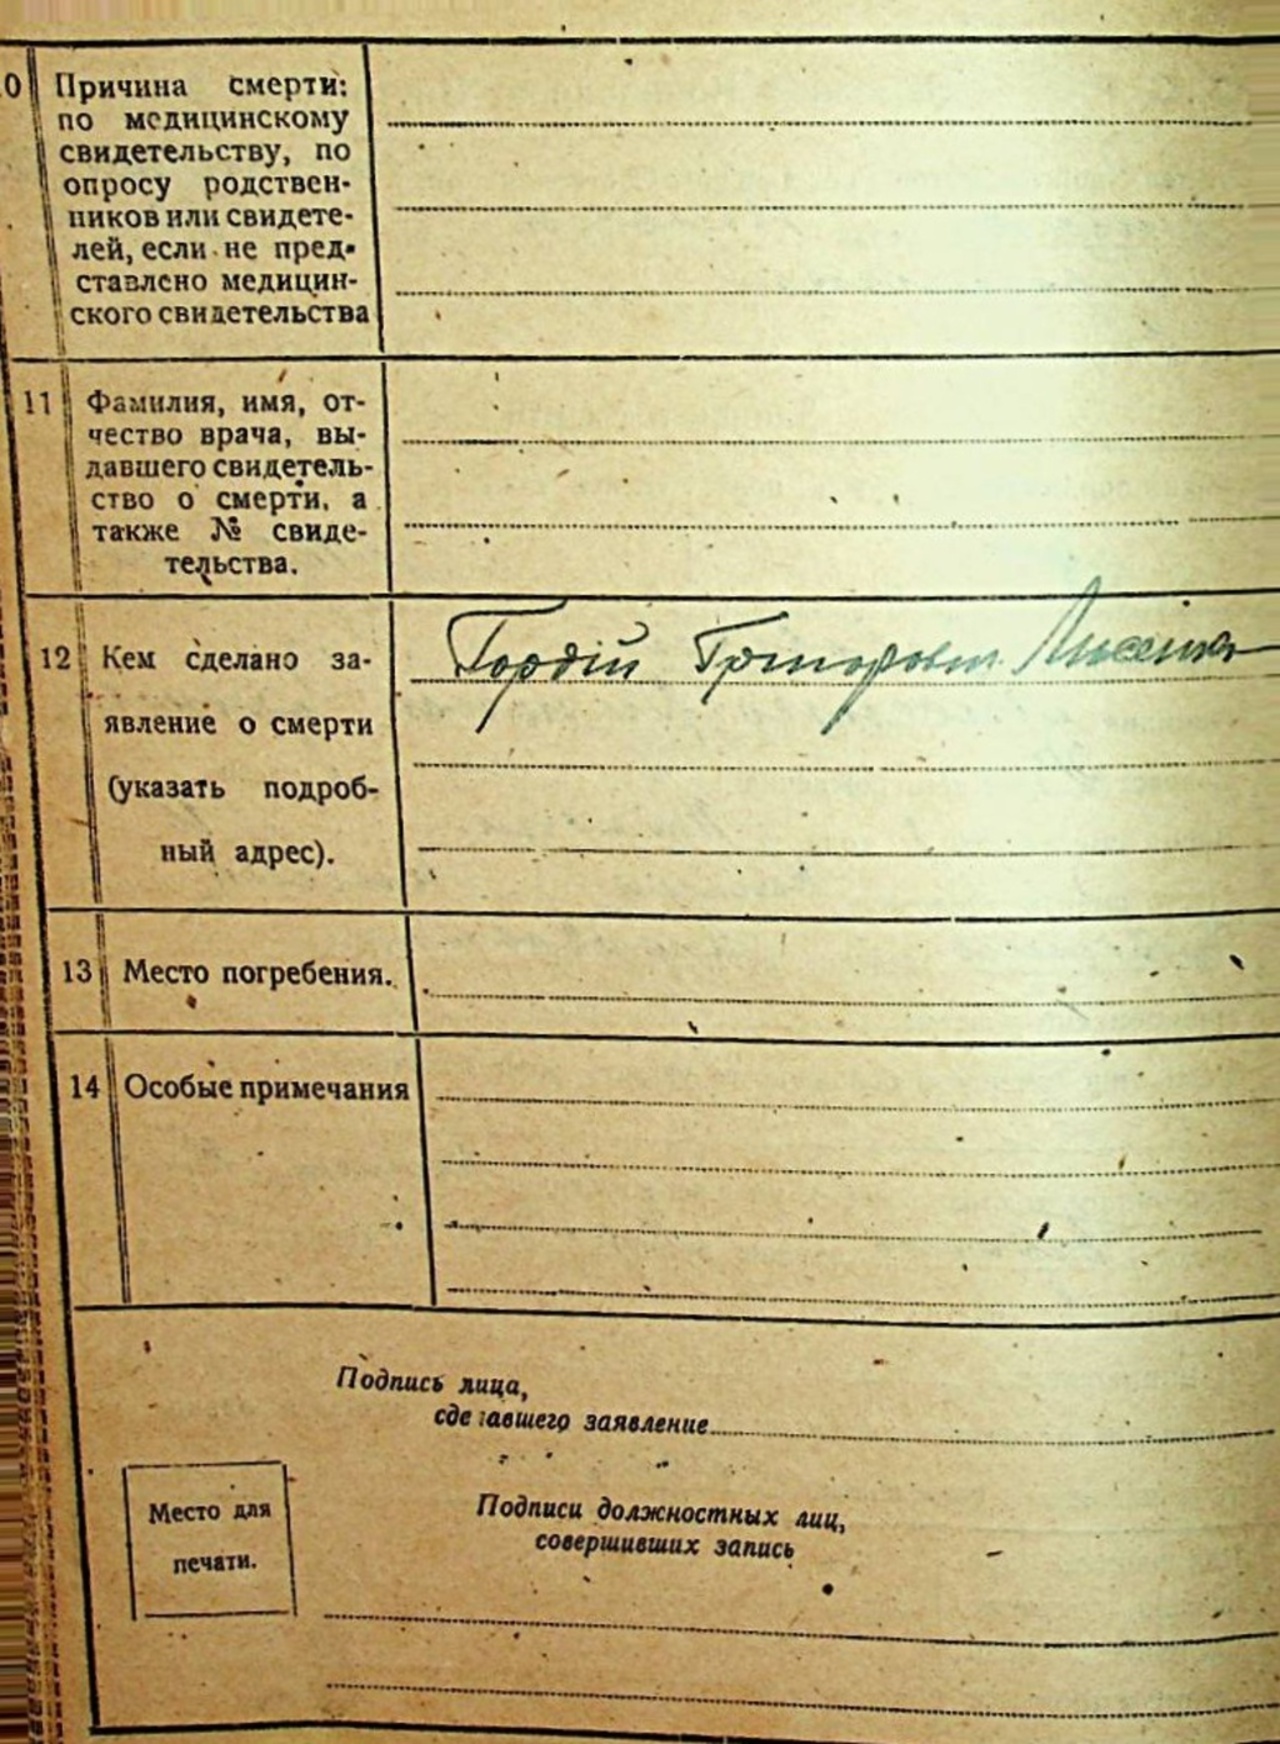 10 Причина смерти:
по медицинскому
свидетельству, по
опросу родствен-
ников или свидете-
лей, если не пред-
ставлено медицин-
ского свидетельства
11 Фамилия, имя, от-
чество врача, вы-
давшего свидетель-
ство о смерти, а
также № свиде-
тельства.
12 Кем сделано за-
явление о смерти
(указать подроб-
ный адрес).
Гордій
13 Место погребения.
14 Особые примечания
Подпись лица,
сделавшего заявление
Место для
печати.
Подписи должностных лиц,
совершивших запись